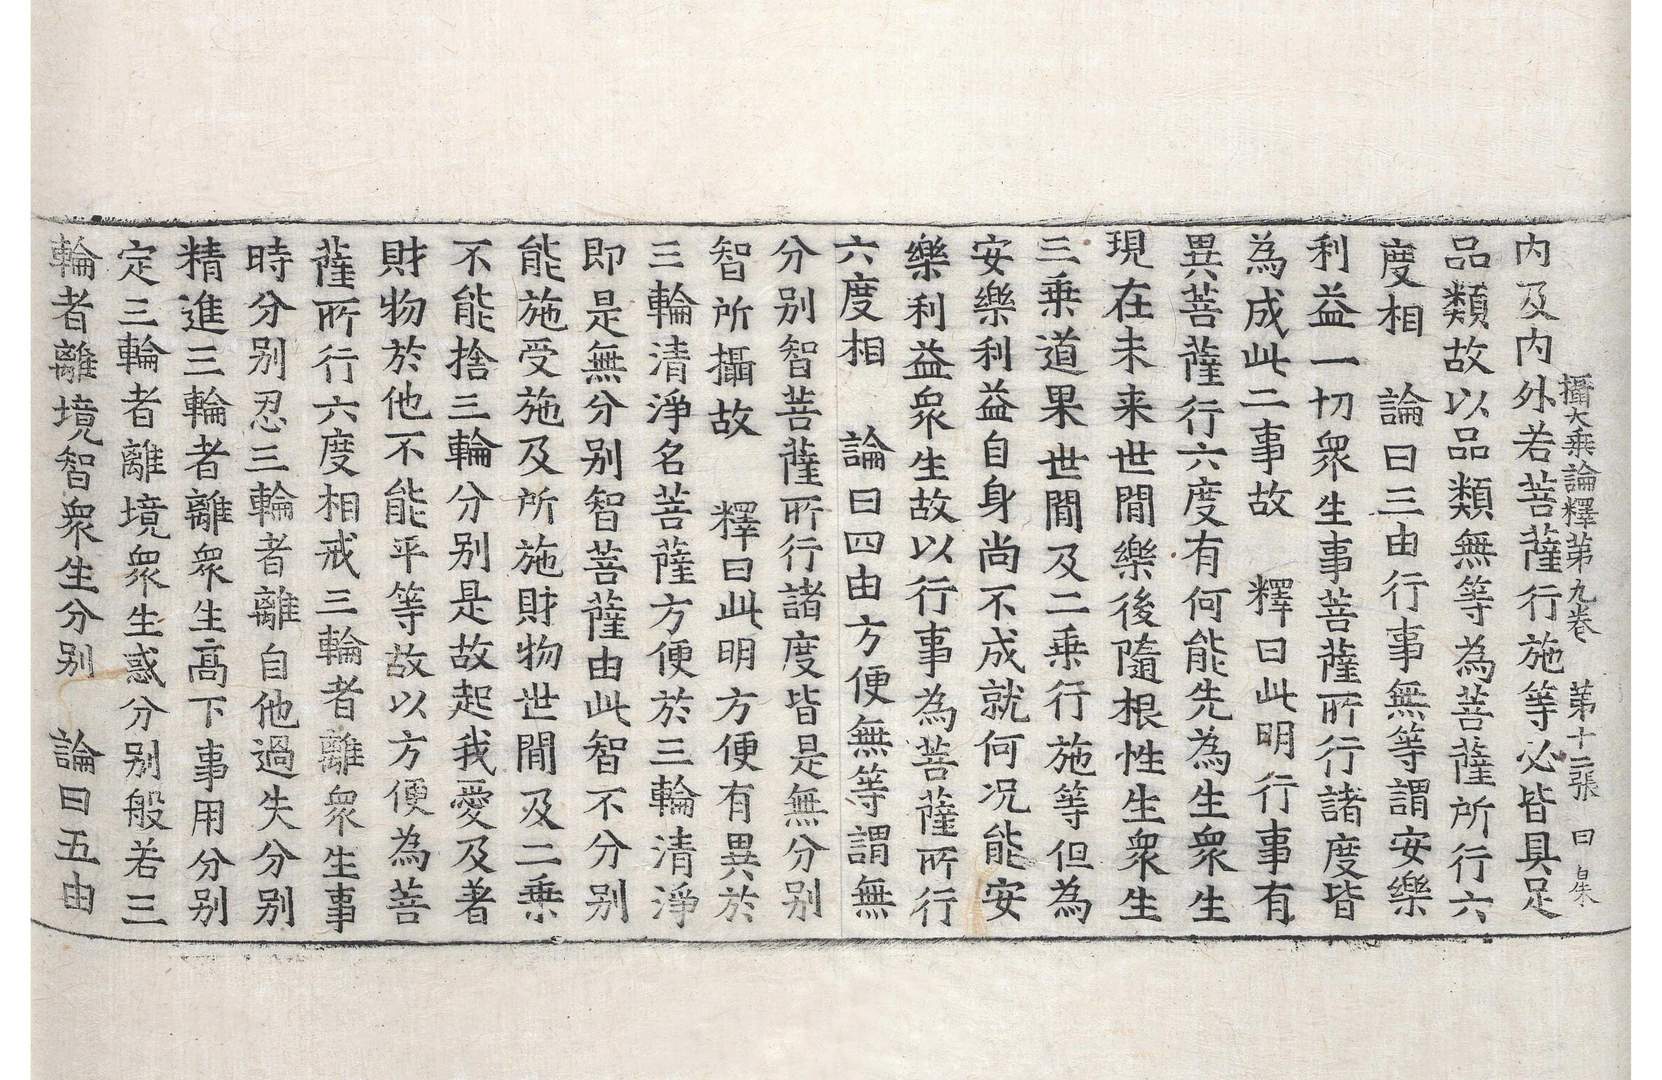 攝大乘論釋第九卷 第十二張 曰
內及內外若菩薩行施等必皆具足
品類故以品類無等為菩薩所行六
度相 論曰三由行事無等謂安樂
利益一切衆生事菩薩所行諸度皆
為成此二事故 釋曰此明行事有
異菩薩行六度有何能先為生衆生
現在未来世間樂後隨根性生衆生
三乗道果世間及二乗行施等但為
安樂利益自身尚不成就何况能安
樂利益衆生故以行事為菩薩所行
六度相 論曰四由方便無等謂無
分别智菩薩所行諸度皆是無分别
智所攝故 釋曰此明方便有異於
三輪清淨名菩薩方便於三輪清淨
即是無分别智菩薩由此智不分别
能施受施及所施財物世間及二乗
不能捨三輪分别是故起我愛及著
財物於他不能平等故以方便為菩
薩所行六度相戒三輪者離衆生事
時分别忍三輪者離自他過失分别
精進三輪者離衆生高下事用分别
定三輪者離境衆生惑分别般若三
輪者離境智衆生分别 論曰五由